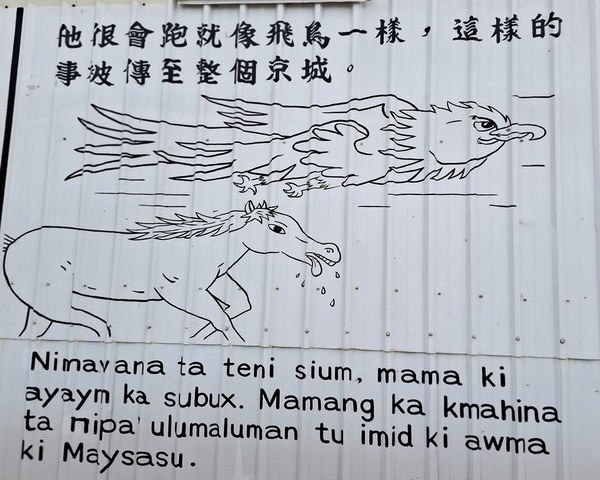 他很會跑就像飛鳥一樣，這樣的
事被傳至整個京城。
Nimavana ta teni sium, mama ki
ayaym ka subux. Mamang ka kmahina
ta nipa' ulumaluman tu imid ki awma
ki Maysasu.